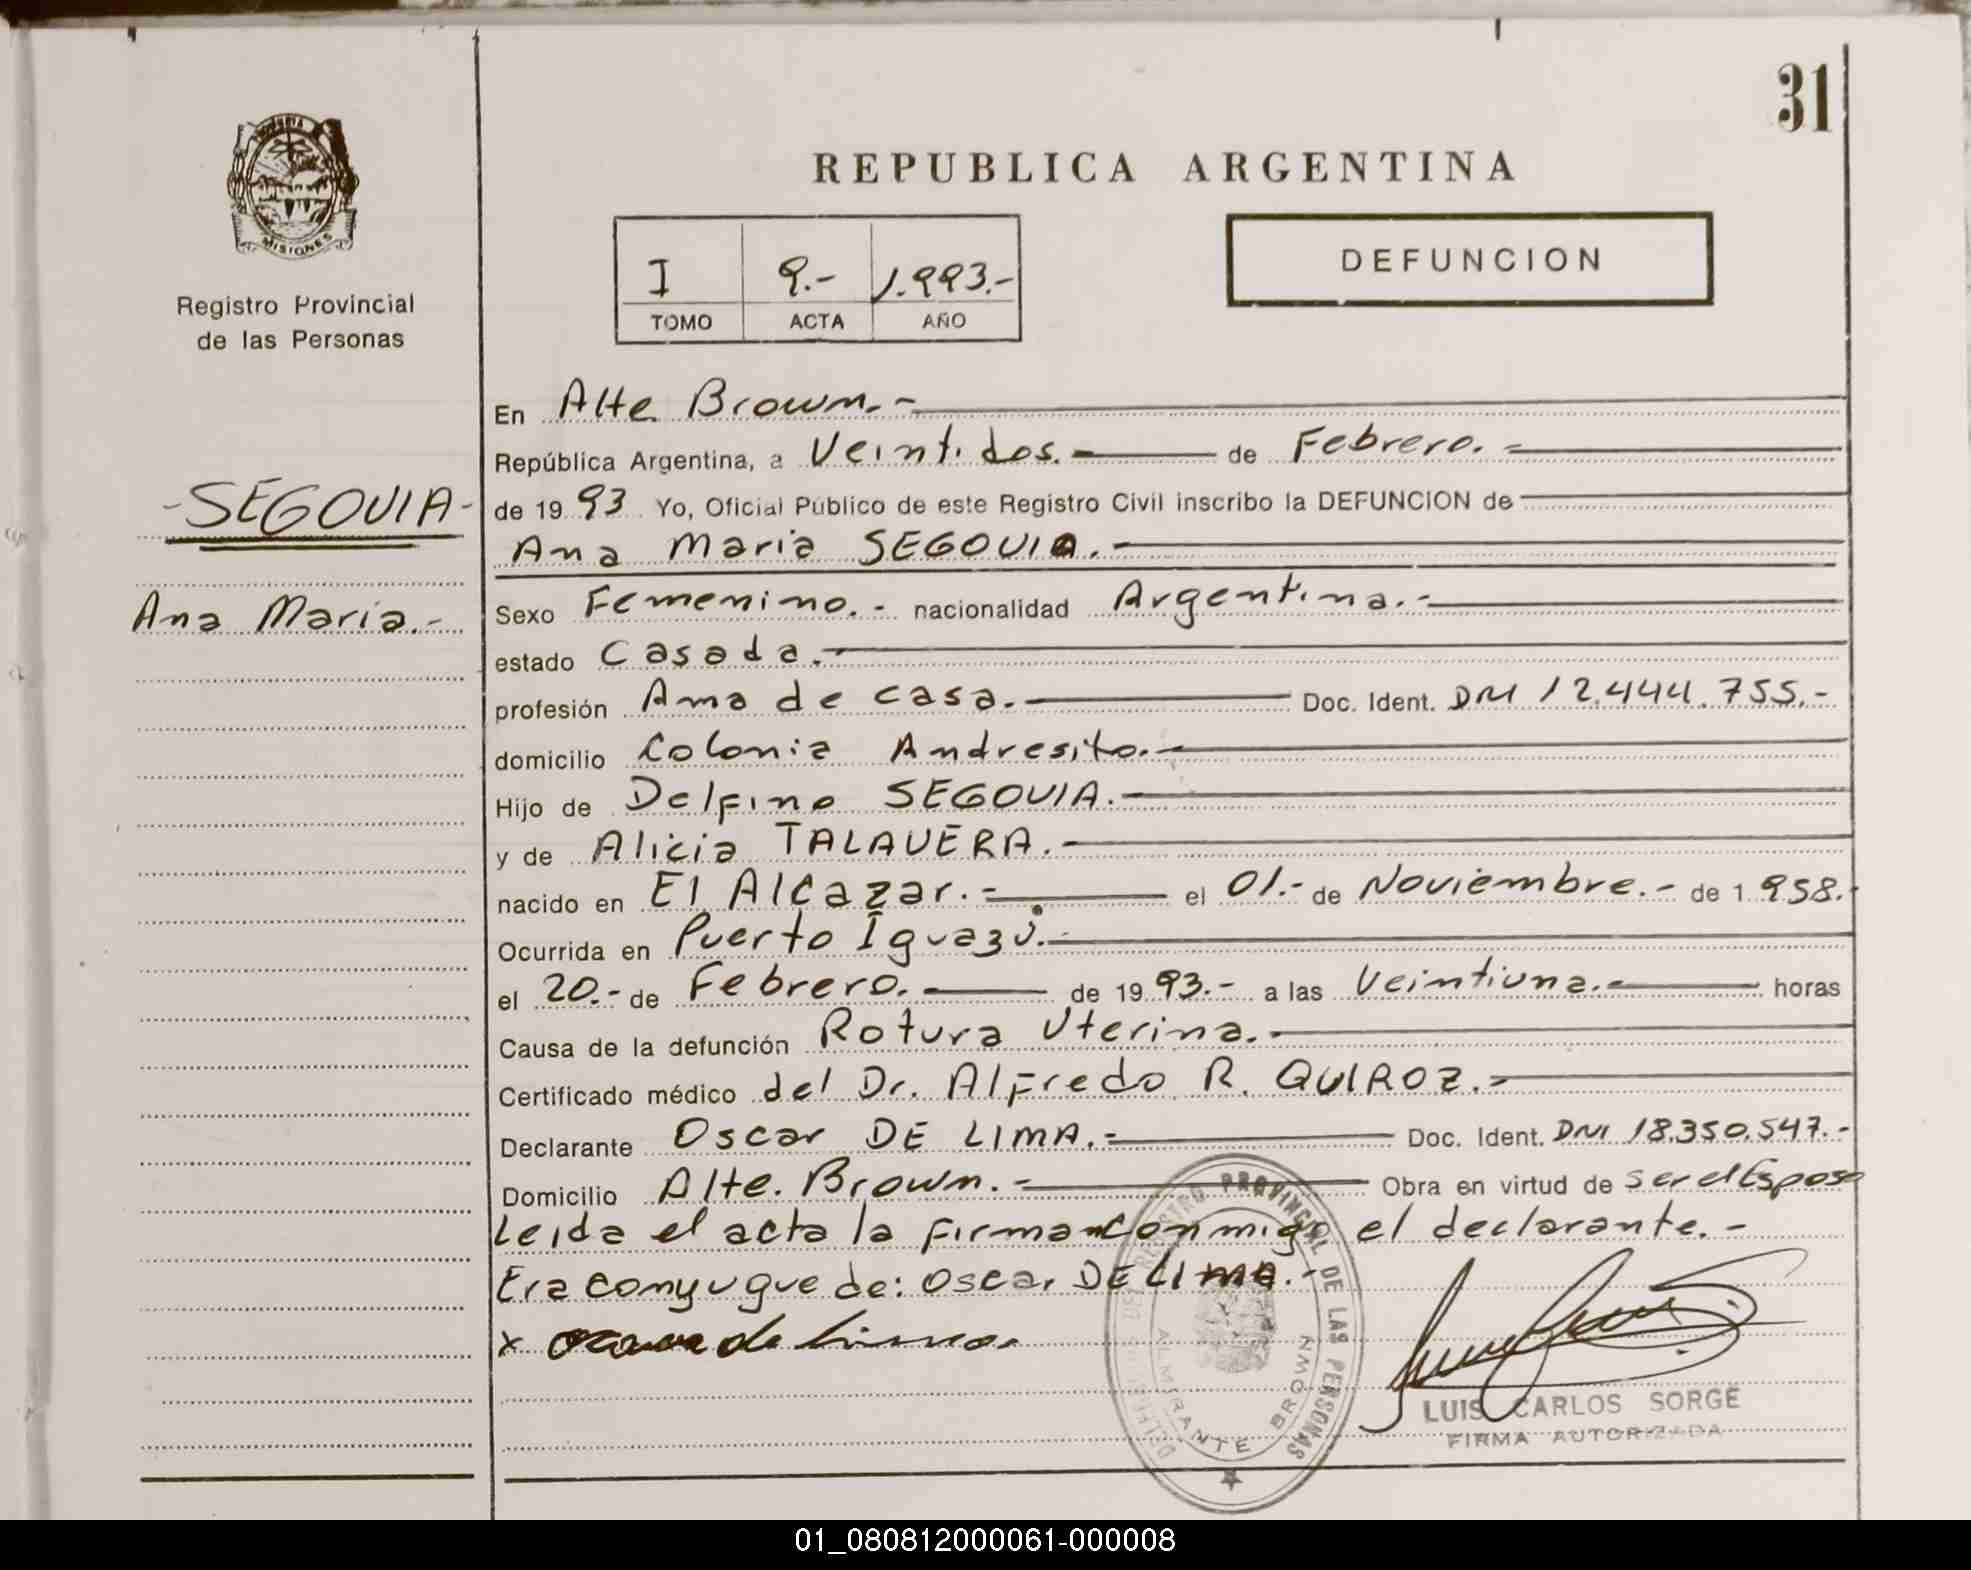 31
REPUBLICA ARGENTINA
MISIONES
Registro Provincial
de las Personas
I 9.- 1.993.-
TOMO ACTA AÑO
DEFUNCION
-SEGOVIA-
Ana Maria.-
En Alte Brown.-
República Argentina, a Veintidos. de Febrero.-
de 1993 Yo, Oficial Público de este Registro Civil inscribo la DEFUNCION de
Ana Maria SEGOVIA.-
Sexo Femenino.- nacionalidad Argentina.-
estado Casada.-
profesión Ama de casa.- Doc. Ident. DNI 12.444.755.-
domicilio Colonia Andresito.-
Hijo de Delfino SEGOVIA.-
y de Alicia TALAVERA.-
nacido en El Alcazar.- el 01.- de Noviembre.- de 1.958.-
Ocurrida en Puerto Iguazú.-
el 20.- de Febrero.- de 1993.- a las Veintiuna.- horas
Causa de la defunción Rotura Uterina.-
Certificado médico del Dr. Alfredo R. QUIROZ.-
Declarante Oscar DE LIMA.- Doc. Ident. DNI 18.350.547.-
Domicilio Alte. Brown.- Obra en virtud de ser el Esposo
Leida el acta la firma conmigo el declarante.-
Era conyugue de: Oscar DE LIMA.-
x de
REGISTRO PROVINCIAL DE LAS PERSONAS
ALMIRANTE BROWN
LUIS CARLOS SORGE
FIRMA AUTORIZADA
01_080812000061-000008